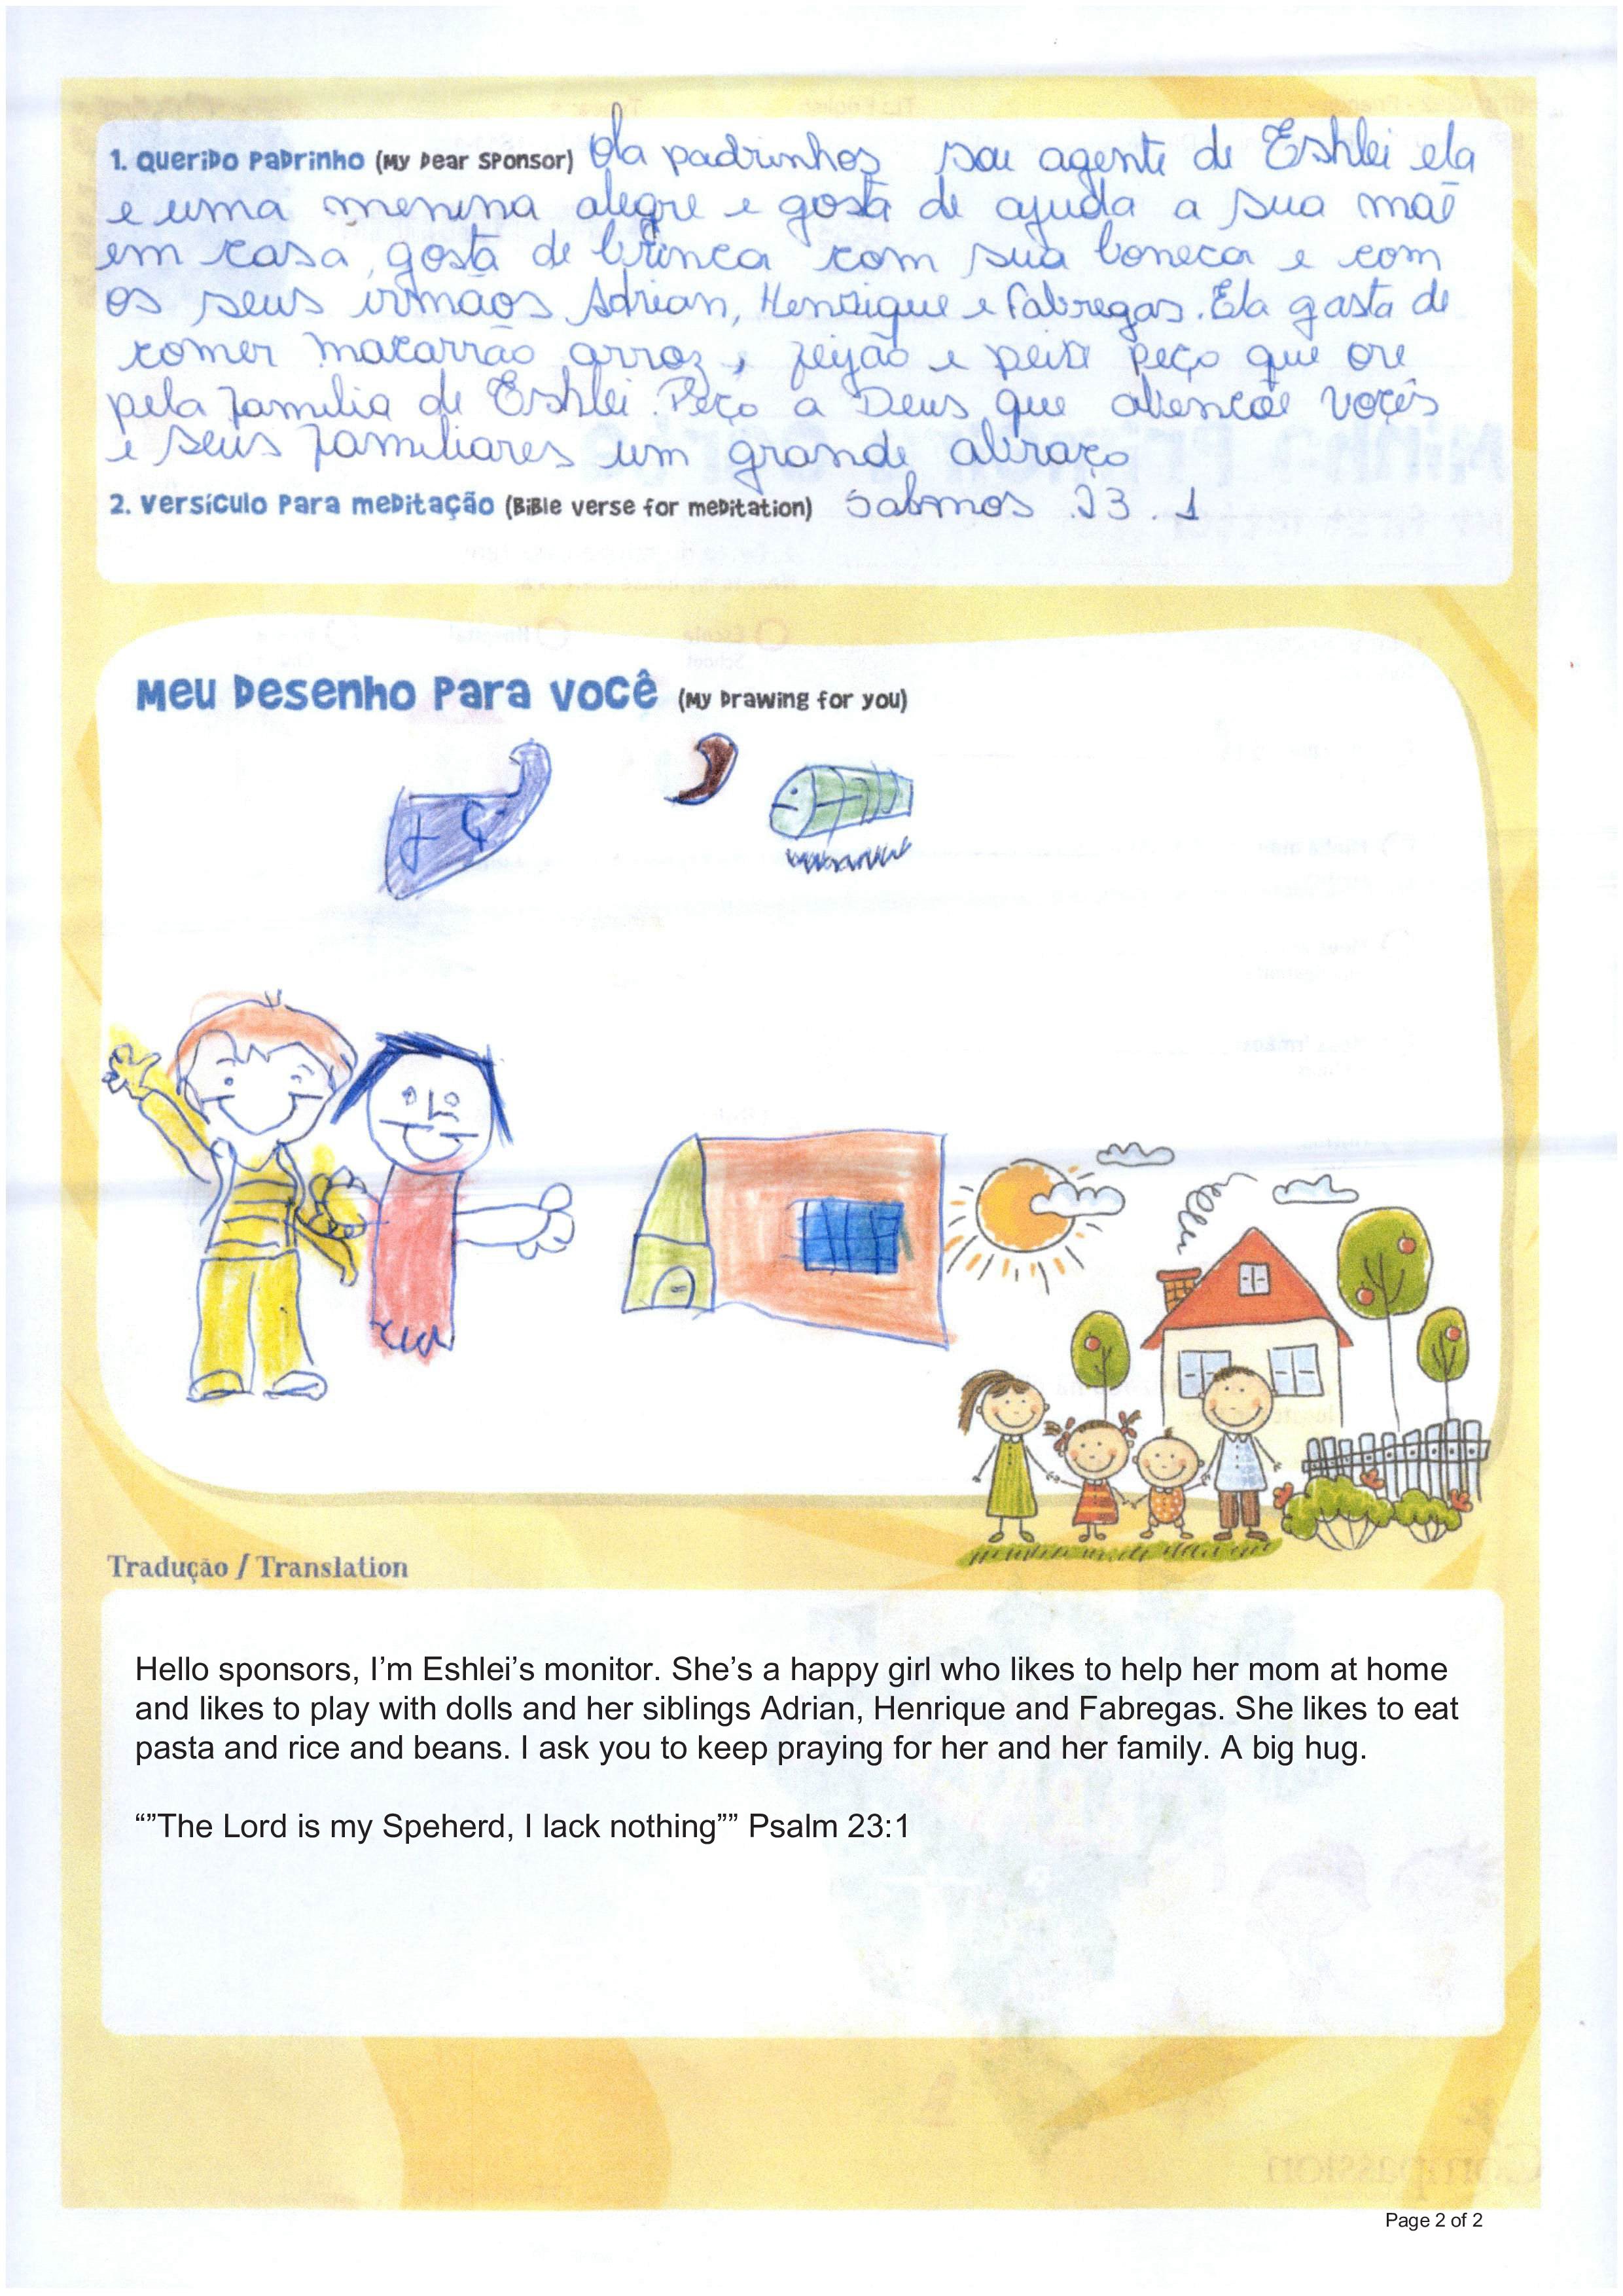 1. Querido Padrinho (My Dear Sponsor) Ola padrinhos sou agente de Eshlei ela
e uma menina alegre e gosta de ajuda a sua mãe
em casa, gosta de brinca com sua boneca e com
os seus irmãos Adrian, Henrique e Fabregas. Ela gasta de
comer macarrão arroz, feijão e peixe peço que ore
pela familia de Eshlei. Peço a Deus que abençõe voçês
e seus familiares um grande abraço
2. Versículo para meditação (Bible verse for meditation) Salmos 23.1
Meu Desenho Para Você (My Drawing for you)
Tradução / Translation
Hello sponsors, I’m Eshlei’s monitor. She’s a happy girl who likes to help her mom at home
and likes to play with dolls and her siblings Adrian, Henrique and Fabregas. She likes to eat
pasta and rice and beans. I ask you to keep praying for her and her family. A big hug.
“”The Lord is my Speherd, I lack nothing”” Psalm 23:1
Page 2 of 2